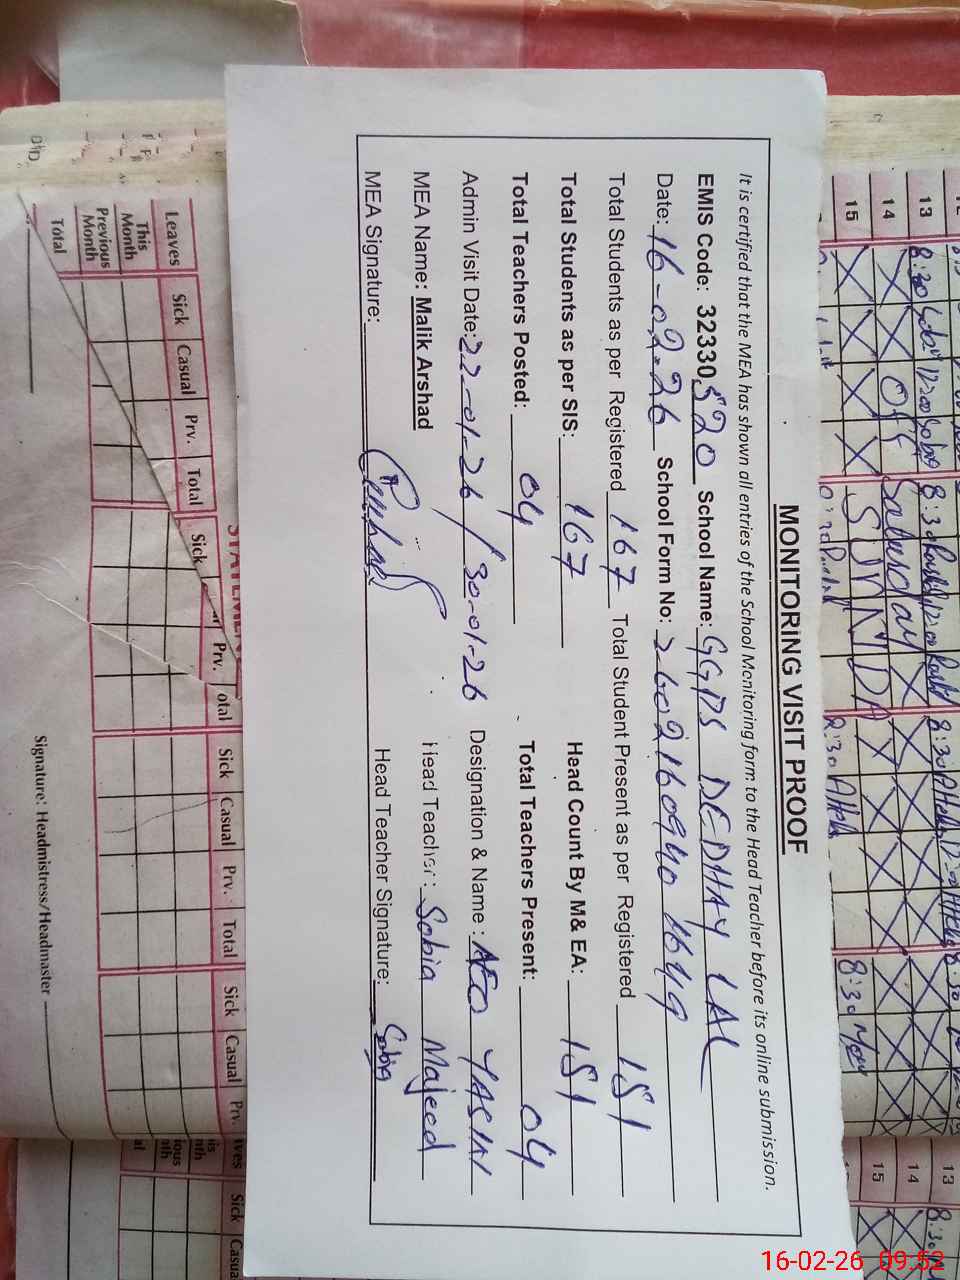 MONITORING VISIT PROOF
It is certified that the MEA has shown all entries of the School Monitoring form to the Head Teacher before its online submission.
EMIS Code: 32330520 School Name: GGPS DEDHAY LAL
Date: 16-02-26 School Form No: 260216094016449
Total Students as per Registered 167 Total Student Present as per Registered 151
Total Students as per SIS: 167 Head Count By M& EA: 151
Total Teachers Posted: 04 Total Teachers Present: 04
Admin Visit Date: 22-01-26 / 30-01-26 Designation & Name: AEO YASIN
MEA Name: Malik Arshad Head Teacher: Sobia Majeed
MEA Signature: Head Teacher Signature: Sobia
12
13 8:30 12:00 8:30 12:00 8:30
14 OFF Saturday
15 SUNDAY
8:30
Leaves Sick Casual Prv. Total Sick Prv. Total Sick Casual Prv. Total Sick Casual Prv.
This Month
Previous Month
Total
Signature: Headmistress/Headmaster
13 8:30
14
15
Sick Casual
16-02-26 09:52